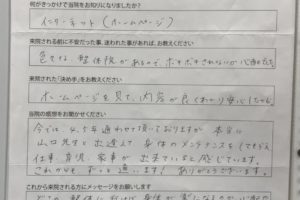 何がきっかけで当院をお知りになりましたか?
インターネット(ホームページ)
来院される前に不安だった事、迷われた事があれば、お教えください
色々な整体院があるので、ボキボキされないか心配でした。
来院された「決め手」をお教えください
ホームページを見て、内容が良くわかり安心したから。
当院の感想をお聞かせください
今では 4、5年通わせて頂いておりますが 本当に
山口先生と出逢えて 身体のメンテナンスをしてもらえ
仕事、育児、家事が出来ていると感じています。
これからもずっと通います! ありがとうございます。
これから来院される方にメッセージをお願いします